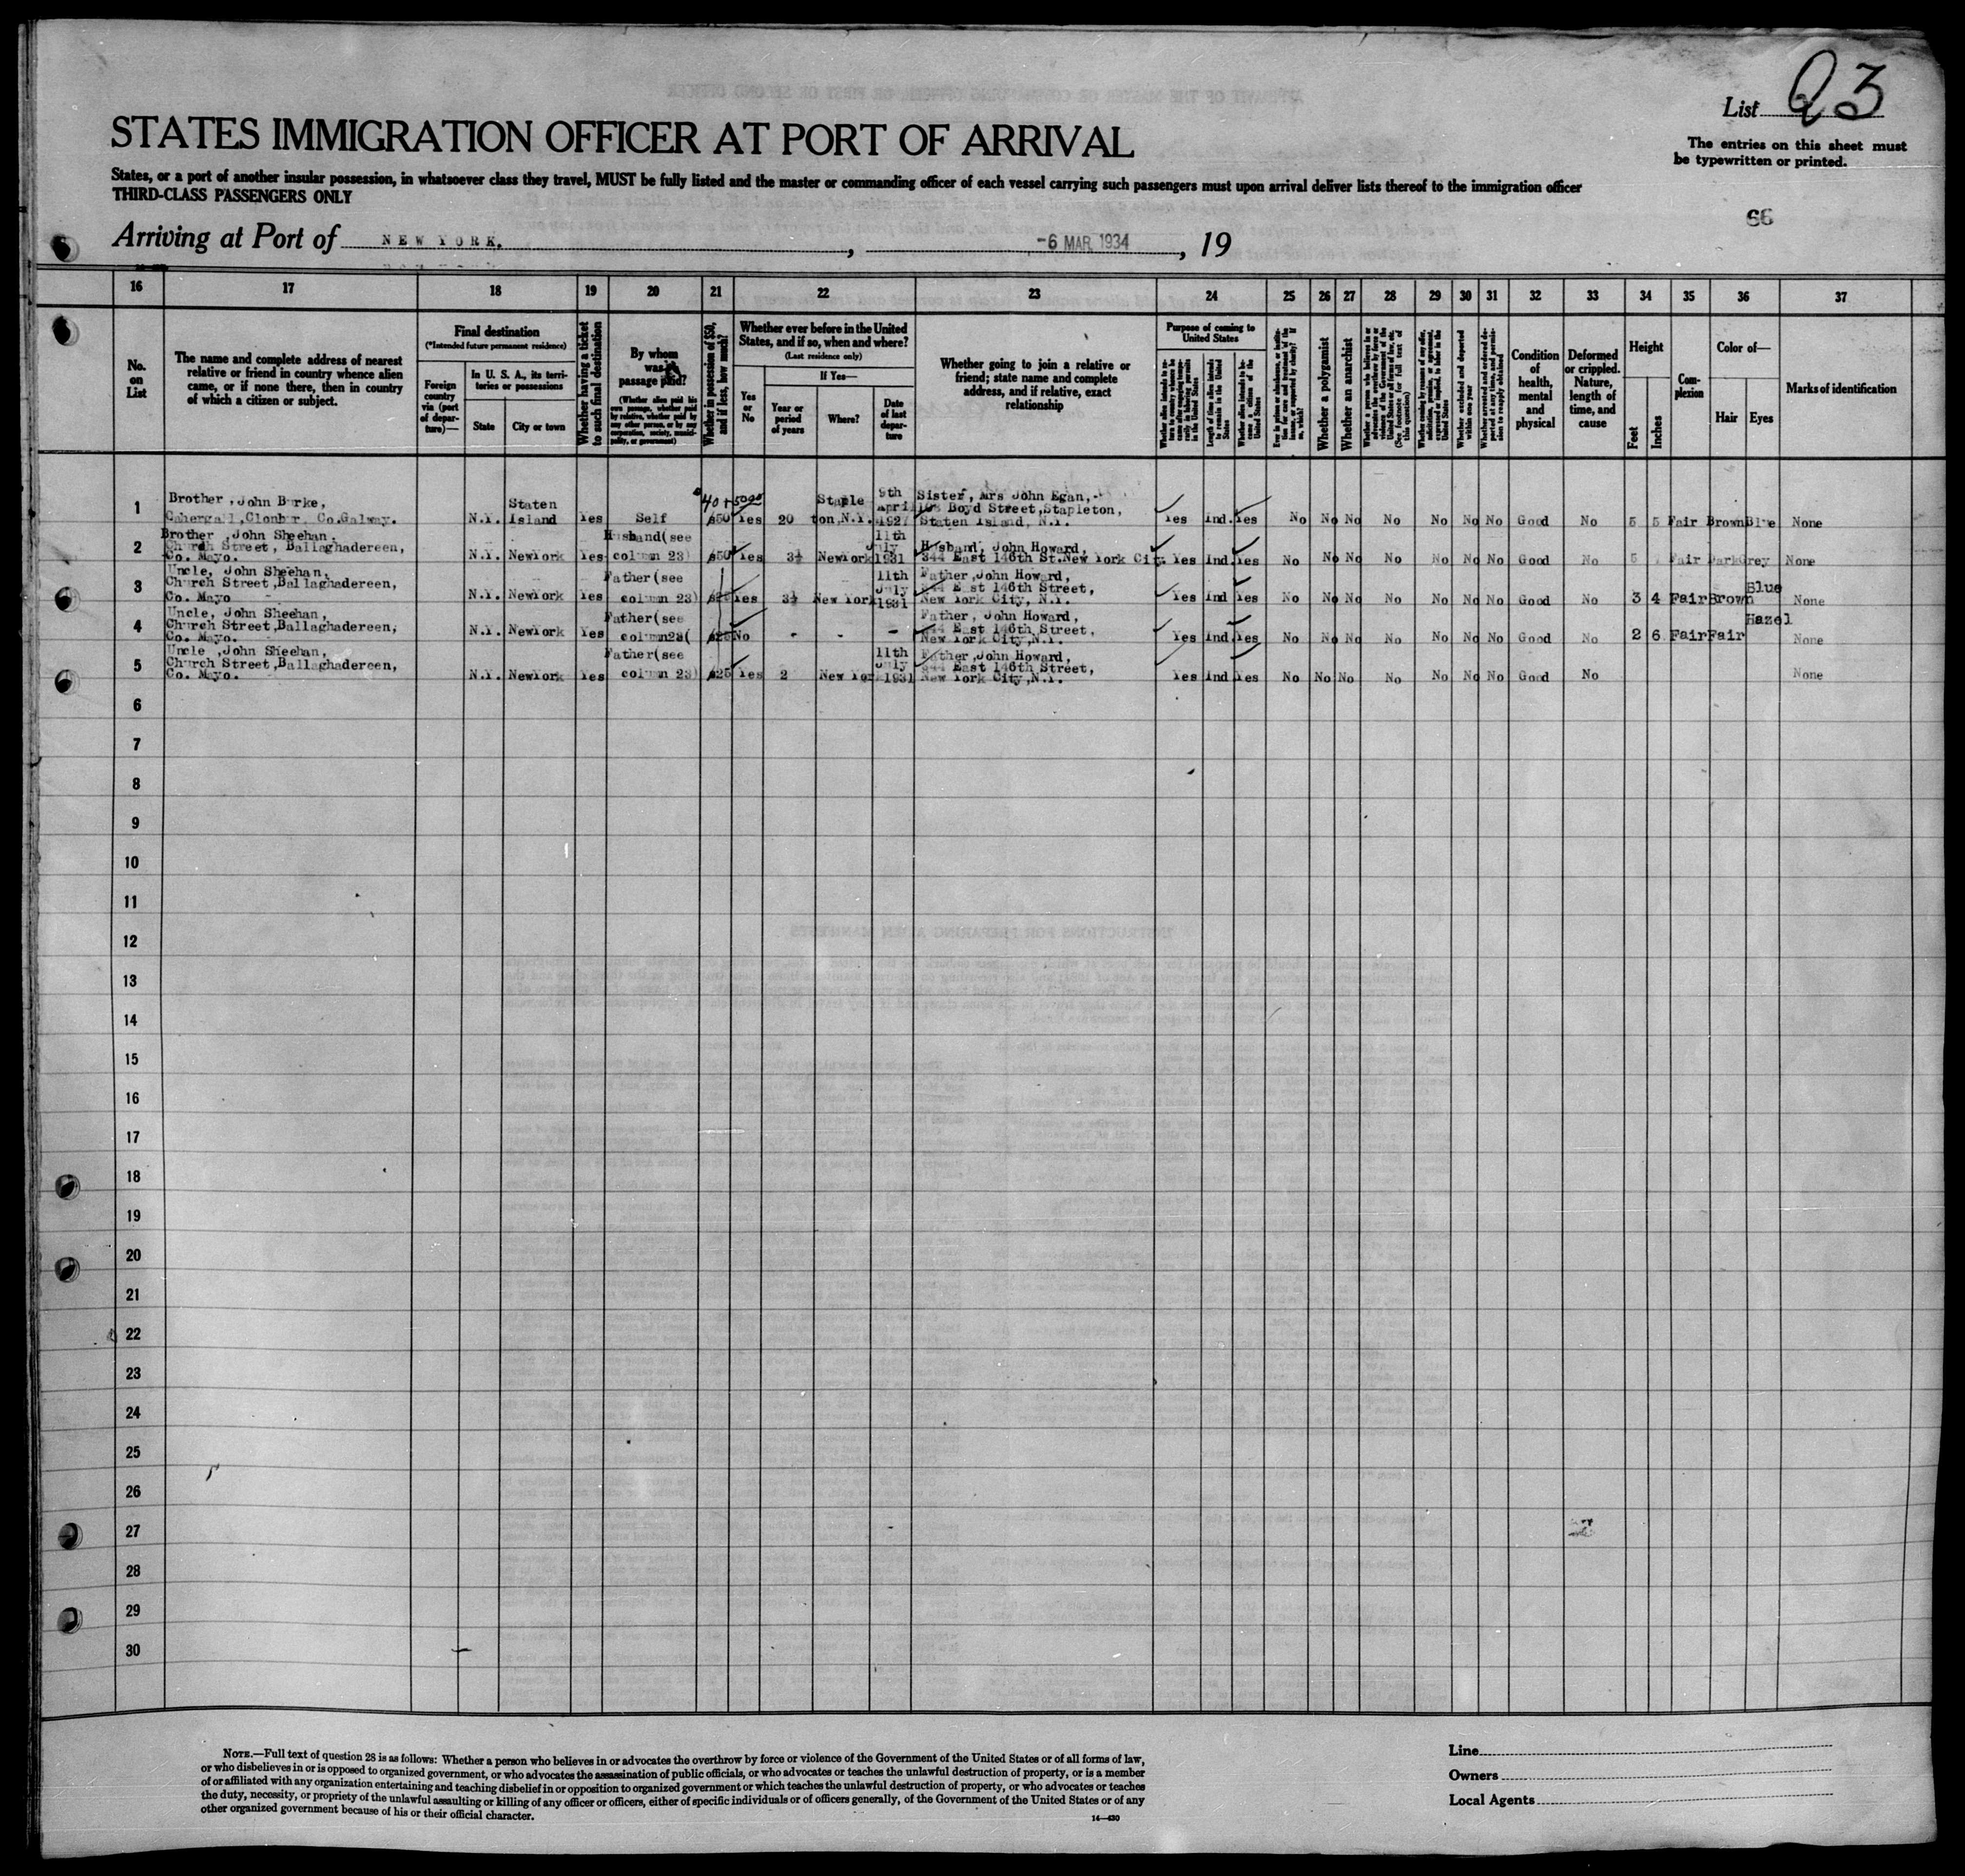 List 23
The entries on this sheet must
be typewritten or printed.
STATES IMMIGRATION OFFICER AT PORT OF ARRIVAL
States, or a port of another insular possession, in whatsoever class they travel, MUST be fully listed and the master or commanding officer of each vessel carrying such passengers must upon arrival deliver lists thereof to the immigration officer
THIRD-CLASS PASSENGERS ONLY
66
Arriving at Port of NEW YORK. , -6 MAR 1934 , 19
16 17 18 19 20 21 22 23 24 25 26 27 28 29 30 31 32 33 34 35 36 37
No.
on
List
The name and complete address of nearest
relative or friend in country whence alien
came, or if none there, then in country
of which a citizen or subject.
Final destination
(*Intended future permanent residence)
Foreign
country
via (port
of depar-
ture)—
In U. S. A., its terri-
tories or possessions
State
City or town
Whether having a ticket
to such final destination
By whom
was
passage paid?
(Whether alien paid his
own passage, whether paid
by relative, whether paid by
any other person, or by any
corporation, society, munici-
pality, or government)
Whether in possession of $50,
and if less, how much?
Whether ever before in the United
States, and if so, when and where?
(Last residence only)
Yes
or
No
If Yes—
Year or
period
of years
Where?
Date
of last
depar-
ture
Whether going to join a relative or
friend; state name and complete
address, and if relative, exact
relationship
Purpose of coming to
United States
Length of time alien intends
to remain in the United
States
Whether alien intends to be-
come a citizen of the
United States
Whether a polygamist
Whether an anarchist
(See footnote for full text of
this question)
Whether excluded and deported
within one year
Condition
of
health,
mental
and
physical
Deformed
or crippled.
Nature,
length of
time, and
cause
Height
Feet
Inches
Com-
plexion
Color of—
Hair
Eyes
Marks of identification
1 Brother, John Burke,
Clonbur, Co.Galway. N.Y. Staten Island Yes Self 40 + $50 Yes 20 Stapleton,N.Y. 9th April 1927 Sister, Mrs John Egan,
Boyd Street,Stapleton,
Staten Island, N.Y. Yes Ind. Yes No No No No No No No Good No 5 5 Fair Brown Blue None
2 Brother, John Sheehan,
Church Street, Ballaghadereen,
Co. Mayo. N.Y. NewYork Yes Husband(see column 23) $50 Yes 3½ NewYork 11th July 1931 Husband, John Howard,
344 East 146th St.New York City. Yes Ind. Yes No No No No No No No Good No 5 Fair Dark Grey None
3 Uncle, John Sheehan,
Church Street,Ballaghadereen,
Co. Mayo N.Y. NewYork Yes Father(see column 23) Yes 3½ New York 11th July 1931 Father, John Howard,
East 146th Street,
New York City, N.Y. Yes Ind Yes No No No No No No No Good No 3 4 Fair Brown Blue None
4 Uncle, John Sheehan,
Church Street,Ballaghadereen,
Co. Mayo. N.Y. NewYork Yes Father(see column23( $25 No - - - Father, John Howard,
East 146th Street,
New York City,N.Y. Yes Ind. Yes No No No No No No No Good No 2 6 Fair Fair Hazel None
5 Uncle, John Sheehan,
Church Street,Ballaghadereen,
Co. Mayo. N.Y. NewYork Yes Father(see column 23) $25 Yes 2 New York 11th July 1931 Father,John Howard,
East 146th Street,
New York City,N.Y. Yes Ind Yes No No No No No No No Good No None
6
7
8
9
10
11
12
13
14
15
16
17
18
19
20
21
22
23
24
25
26
27
28
29
30
NOTE.—Full text of question 28 is as follows: Whether a person who believes in or advocates the overthrow by force or violence of the Government of the United States or of all forms of law,
or who disbelieves in or is opposed to organized government, or who advocates the assassination of public officials, or who advocates or teaches the unlawful destruction of property, or is a member
of or affiliated with any organization entertaining and teaching disbelief in or opposition to organized government or which teaches the unlawful destruction of property, or who advocates or teaches
the duty, necessity, or propriety of the unlawful assaulting or killing of any officer or officers, either of specific individuals or of officers generally, of the Government of the United States or of any
other organized government because of his or their official character.
14—630
Line
Owners
Local Agents